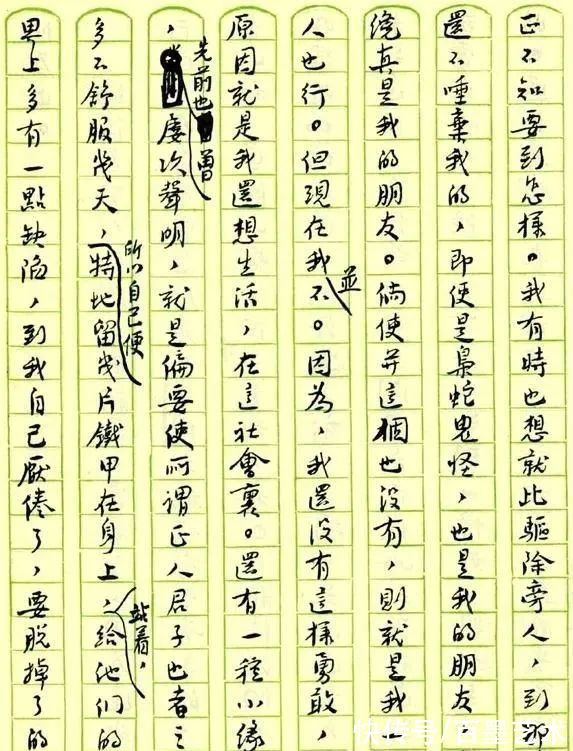 正不知要到怎樣。我有時也想就此驅除旁人,到那
還不唾棄我的,即使是梟蛇鬼怪,也是我的朋友
纔真是我的朋友。倘使并這個也沒有,則就是我
人也行。但現在我並不。因為,我還沒有這樣勇敢,
原因就是我還想生活,在這社會裏。還有一種小緣
,先前也曾屢次聲明,就是偏要使所謂正人君子也者之
多不舒服幾天,所以自己便特地留幾片鐵甲在身上,站着,給他們的
界上多有一點缺陷,到我自己厭倦了,要脫掉了的
快传号/